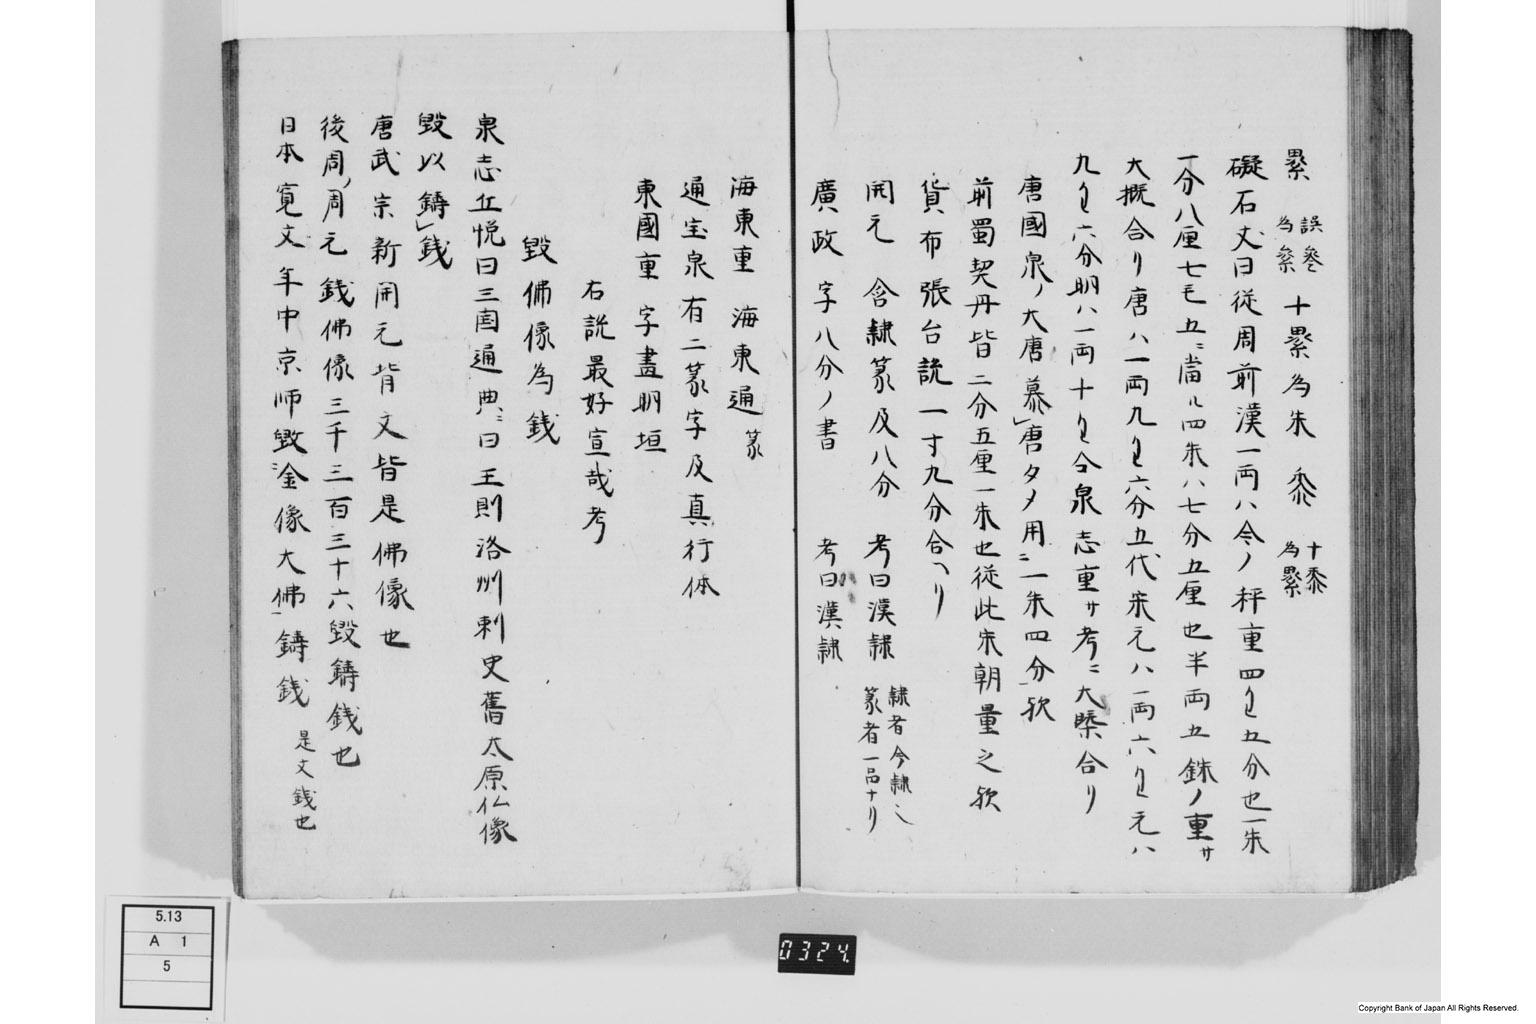 累 誤叄為絫 十累為朱 黍 十黍為累
礙石丈曰従周前漢一両ハ今ノ秤重四匁五分也一朱
一分八厘七毛五ニ當ル四朱ハ七分五厘也半両五銖ノ重サ
大概合リ唐ハ一両九匁六分五代宋元ハ一両六匁元ハ
九匁六分明ハ一両十匁今泉志重サ考ニ大槩合リ
唐國泉ノ大唐慕唐タメ用ニ一朱四分欤
前蜀契丹皆二分五厘一朱也従此朱朝量之欤
貨布張台説一寸九分合ヘリ
開元 含隷篆及八分 考曰漢隷 隷者今隷之 篆者一品ナリ
廣政 字八分ノ書 考曰漢隷
海東重 海東通 篆
通宝泉有二篆字及真行体
東國重 字畫明垣
右説最好宣哉考
毀佛像為錢
泉志丘悦曰三国通典ニ曰王則洛州刺史舊太原仏像
毀以鑄錢
唐武宗新開元背文皆是佛像也
後周周元錢佛像三千三百三十六毀鑄錢也
日本寛文年中京师毀金像大佛鑄錢 是文錢也
5.13
A 1
5
0324.
Copyright Bank of Japan All Rights Reserved.